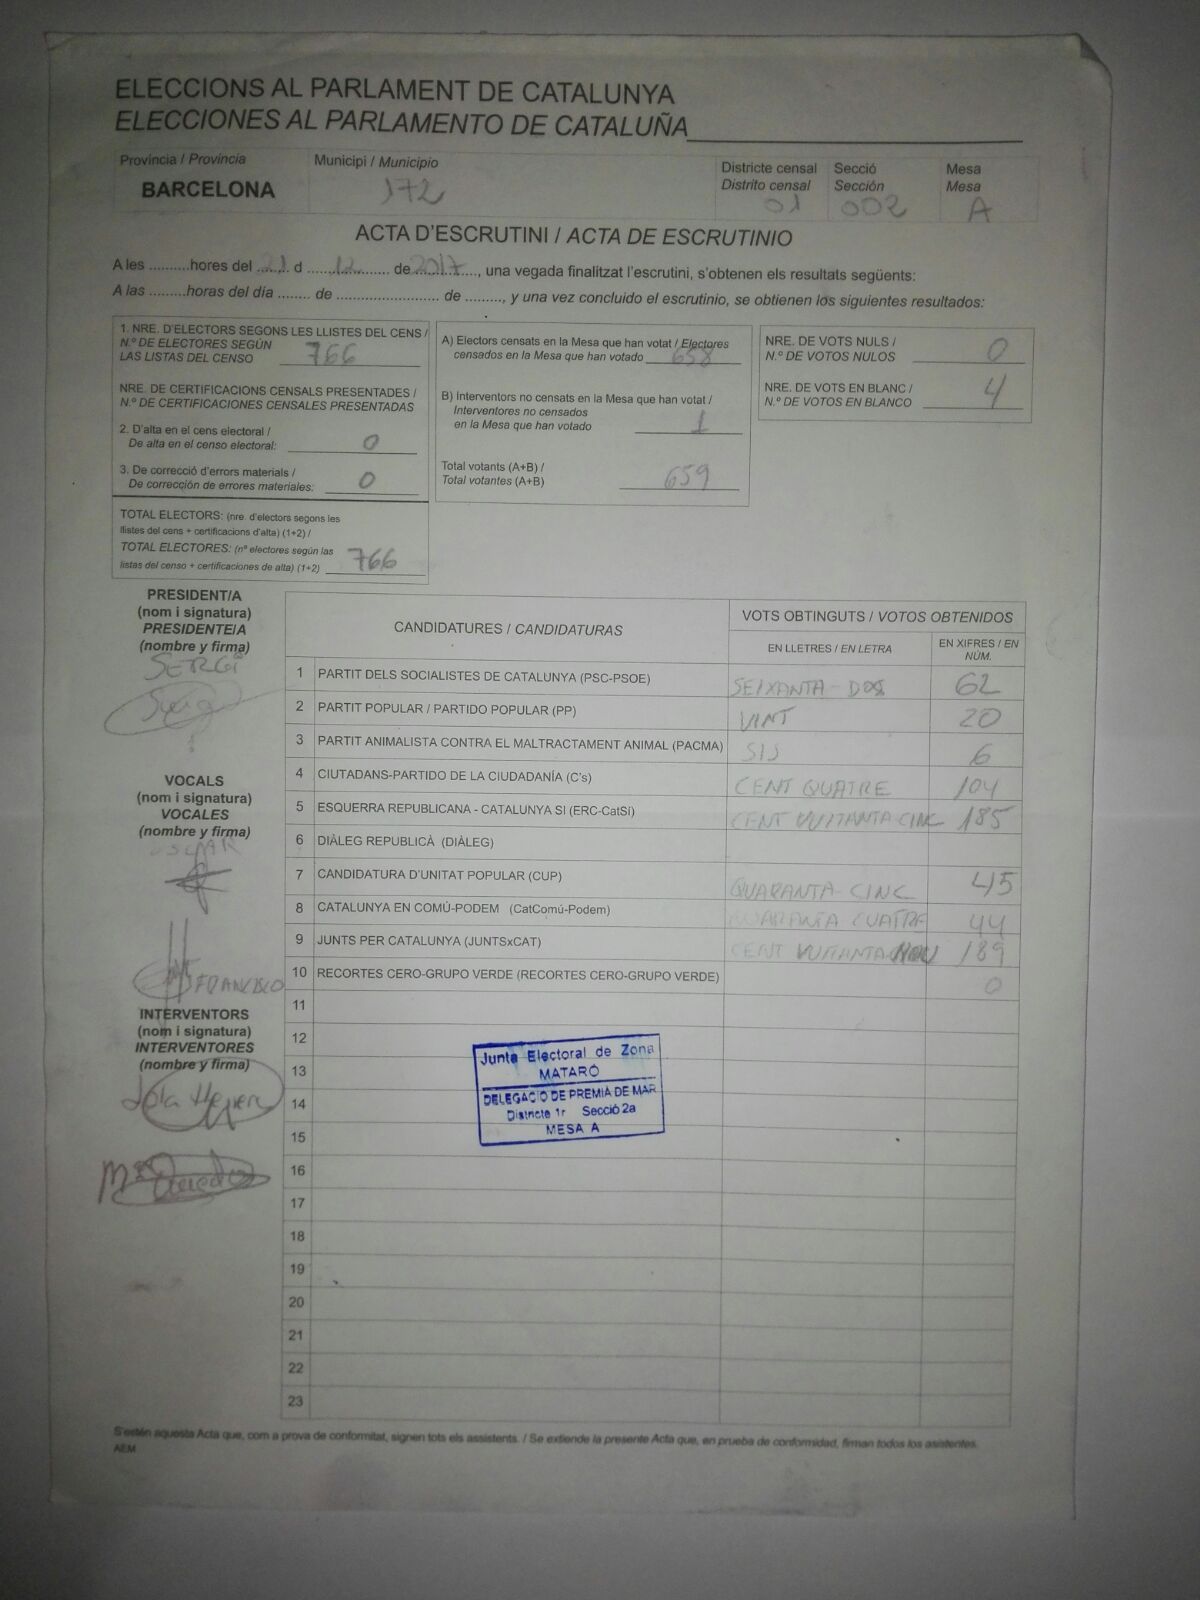 ELECCIONS AL PARLAMENT DE CATALUNYA
ELECCIONES AL PARLAMENTO DE CATALUÑA
Província / Provincia
Municipi / Municipio
Districte censal
Distrito censal
Secció
Sección
Mesa
Mesa
BARCELONA
172
01
002
A
ACTA D'ESCRUTINI / ACTA DE ESCRUTINIO
A les .........hores del 21 d 12 de 2017, una vegada finalitzat l'escrutini, s'obtenen els resultats següents:
A las .........horas del día ........ de ......................... de ........., y una vez concluido el escrutinio, se obtienen los siguientes resultados:
1. NRE. D'ELECTORS SEGONS LES LLISTES DEL CENS /
N.º DE ELECTORES SEGÚN
LAS LISTAS DEL CENSO 766
NRE. DE CERTIFICACIONS CENSALS PRESENTADES /
N.º DE CERTIFICACIONES CENSALES PRESENTADAS
2. D'alta en el cens electoral /
De alta en el censo electoral: 0
3. De correcció d'errors materials /
De corrección de errores materiales: 0
TOTAL ELECTORS: (nre. d'electors segons les
llistes del cens + certificacions d'alta) (1+2) /
TOTAL ELECTORES: (nº electores según las
listas del censo + certificaciones de alta) (1+2) 766
A) Electors censats en la Mesa que han votat / Electores
censados en la Mesa que han votado 658
B) Interventors no censats en la Mesa que han votat /
Interventores no censados
en la Mesa que han votado 1
Total votants (A+B) /
Total votantes (A+B) 659
NRE. DE VOTS NULS /
N.º DE VOTOS NULOS 0
NRE. DE VOTS EN BLANC /
N.º DE VOTOS EN BLANCO 4
PRESIDENT/A
(nom i signatura)
PRESIDENTE/A
(nombre y firma)
SERGI
VOCALS
(nom i signatura)
VOCALES
(nombre y firma)
OSCAR
FRANCISCO
INTERVENTORS
(nom i signatura)
INTERVENTORES
(nombre y firma)
CANDIDATURES / CANDIDATURAS
VOTS OBTINGUTS / VOTOS OBTENIDOS
EN LLETRES / EN LETRA
EN XIFRES / EN
NÚM.
1 PARTIT DELS SOCIALISTES DE CATALUNYA (PSC-PSOE) SEIXANTA-DOS 62
2 PARTIT POPULAR / PARTIDO POPULAR (PP) VINT 20
3 PARTIT ANIMALISTA CONTRA EL MALTRACTAMENT ANIMAL (PACMA) SIS 6
4 CIUTADANS-PARTIDO DE LA CIUDADANÍA (C's) CENT QUATRE 104
5 ESQUERRA REPUBLICANA - CATALUNYA SI (ERC-CatSí) CENT VUITANTA-CINC 185
6 DIÀLEG REPUBLICÀ (DIÀLEG)
7 CANDIDATURA D'UNITAT POPULAR (CUP) QUARANTA-CINC 45
8 CATALUNYA EN COMÚ-PODEM (CatComú-Podem) QUARANTA CUATRE 44
9 JUNTS PER CATALUNYA (JUNTSxCAT) CENT VUITANTA-NOU 189
10 RECORTES CERO-GRUPO VERDE (RECORTES CERO-GRUPO VERDE) 0
11
12
13
14
15
16
17
18
19
20
21
22
23
Junta Electoral de Zona
MATARÓ
DELEGACIÓ DE PREMIÀ DE MAR
Districte 1r Secció 2a
MESA A
S'estén aquesta Acta que, com a prova de conformitat, signen tots els assistents. / Se extiende la presente Acta que, en prueba de conformidad, firman todos los asistentes.
AEM